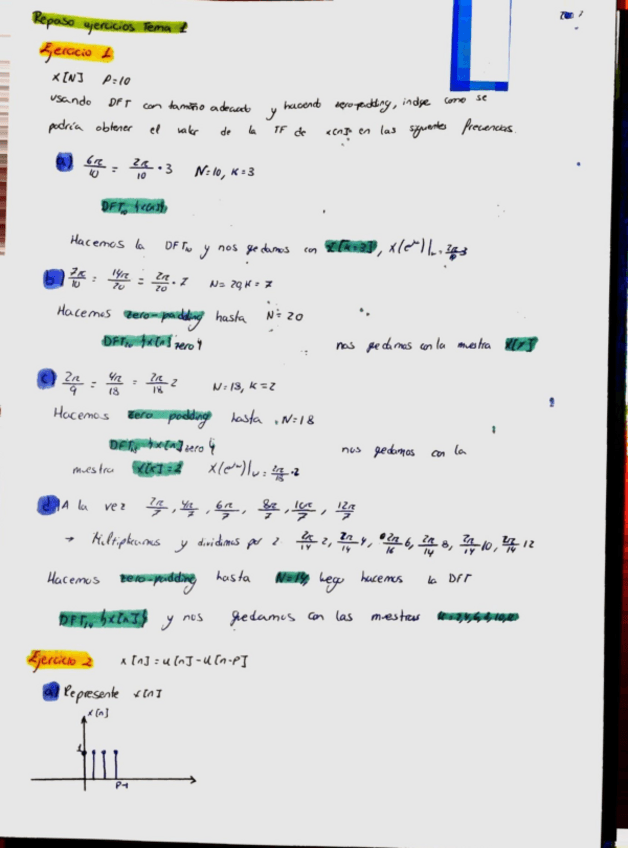 Repaso ejercicios Tema 1
Ejercicio 1
x[N] P=10
usando DFT con tamaño adecuado y haciendo zero-padding, indique como se
podría obtener el valor de la TF de x[n] en las siguientes frecuencias.
a) 6π/10 = 2π/10 · 3 N=10, K=3
DFT₁₀ {x[n]}
Hacemos la DFT₁₀ y nos qedamos con X[K=3], X(e^jω)|ω = 2π/10 3
b) 7π/10 = 14π/20 = 2π/20 · 7 N=20, K=7
Hacemos zero-padding hasta N=20
DFT₂₀ {x[n] zero} nos qedamos con la muestra X[7]
c) 2π/9 = 4π/18 = 2π/18 2 N=18, K=2
Hacemos zero padding hasta N=18
DFT₁₈ {x[n] zero} nos qedamos con la
muestra X[K]=2 X(e^jω)|ω = 2π/18 · 2
d) A la vez 2π/7, 4π/7, 6π/7, 8π/7, 10π/7, 12π/7
→ Multiplicamos y dividimos por 2 2π/14 2, 2π/14 4, 2π/16 6, 2π/14 8, 2π/14 10, 2π/14 12
Hacemos zero-padding hasta N=14, luego hacemos la DFT
DFT₁₄ {x[n]} y nos qedamos con las muestras
Ejercicio 2 x[n] = u[n]-u[n-P]
a) Represente x[n]
x[n]
1
P-1